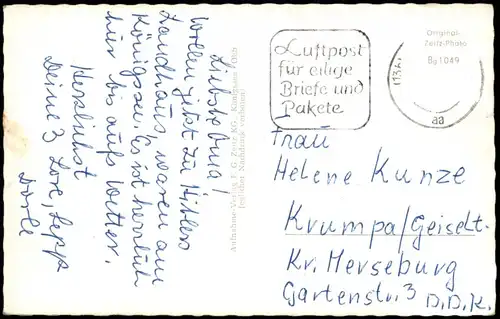 Liebste Oma!
Wollen jetzt zu Hitlers
Landhaus, waren am
Königssee. Es ist herrlich
hier bis aufs Wetter.
Herzlichst
Deine 3 Lore, Sepp
Dorle
Aufnahme-Verlag F. G. Zeitz KG., Königssee/Obb.
Jeglicher Nachdruck verboten!
Luftpost
für eilige
Briefe und
Pakete
aa
Original-
Zeitz-Photo
Bg 1049
Frau
Helene Kunze
Krumpa/Geiselt.
Kr. Merseburg
Gartenstr. 3 D.D.R.